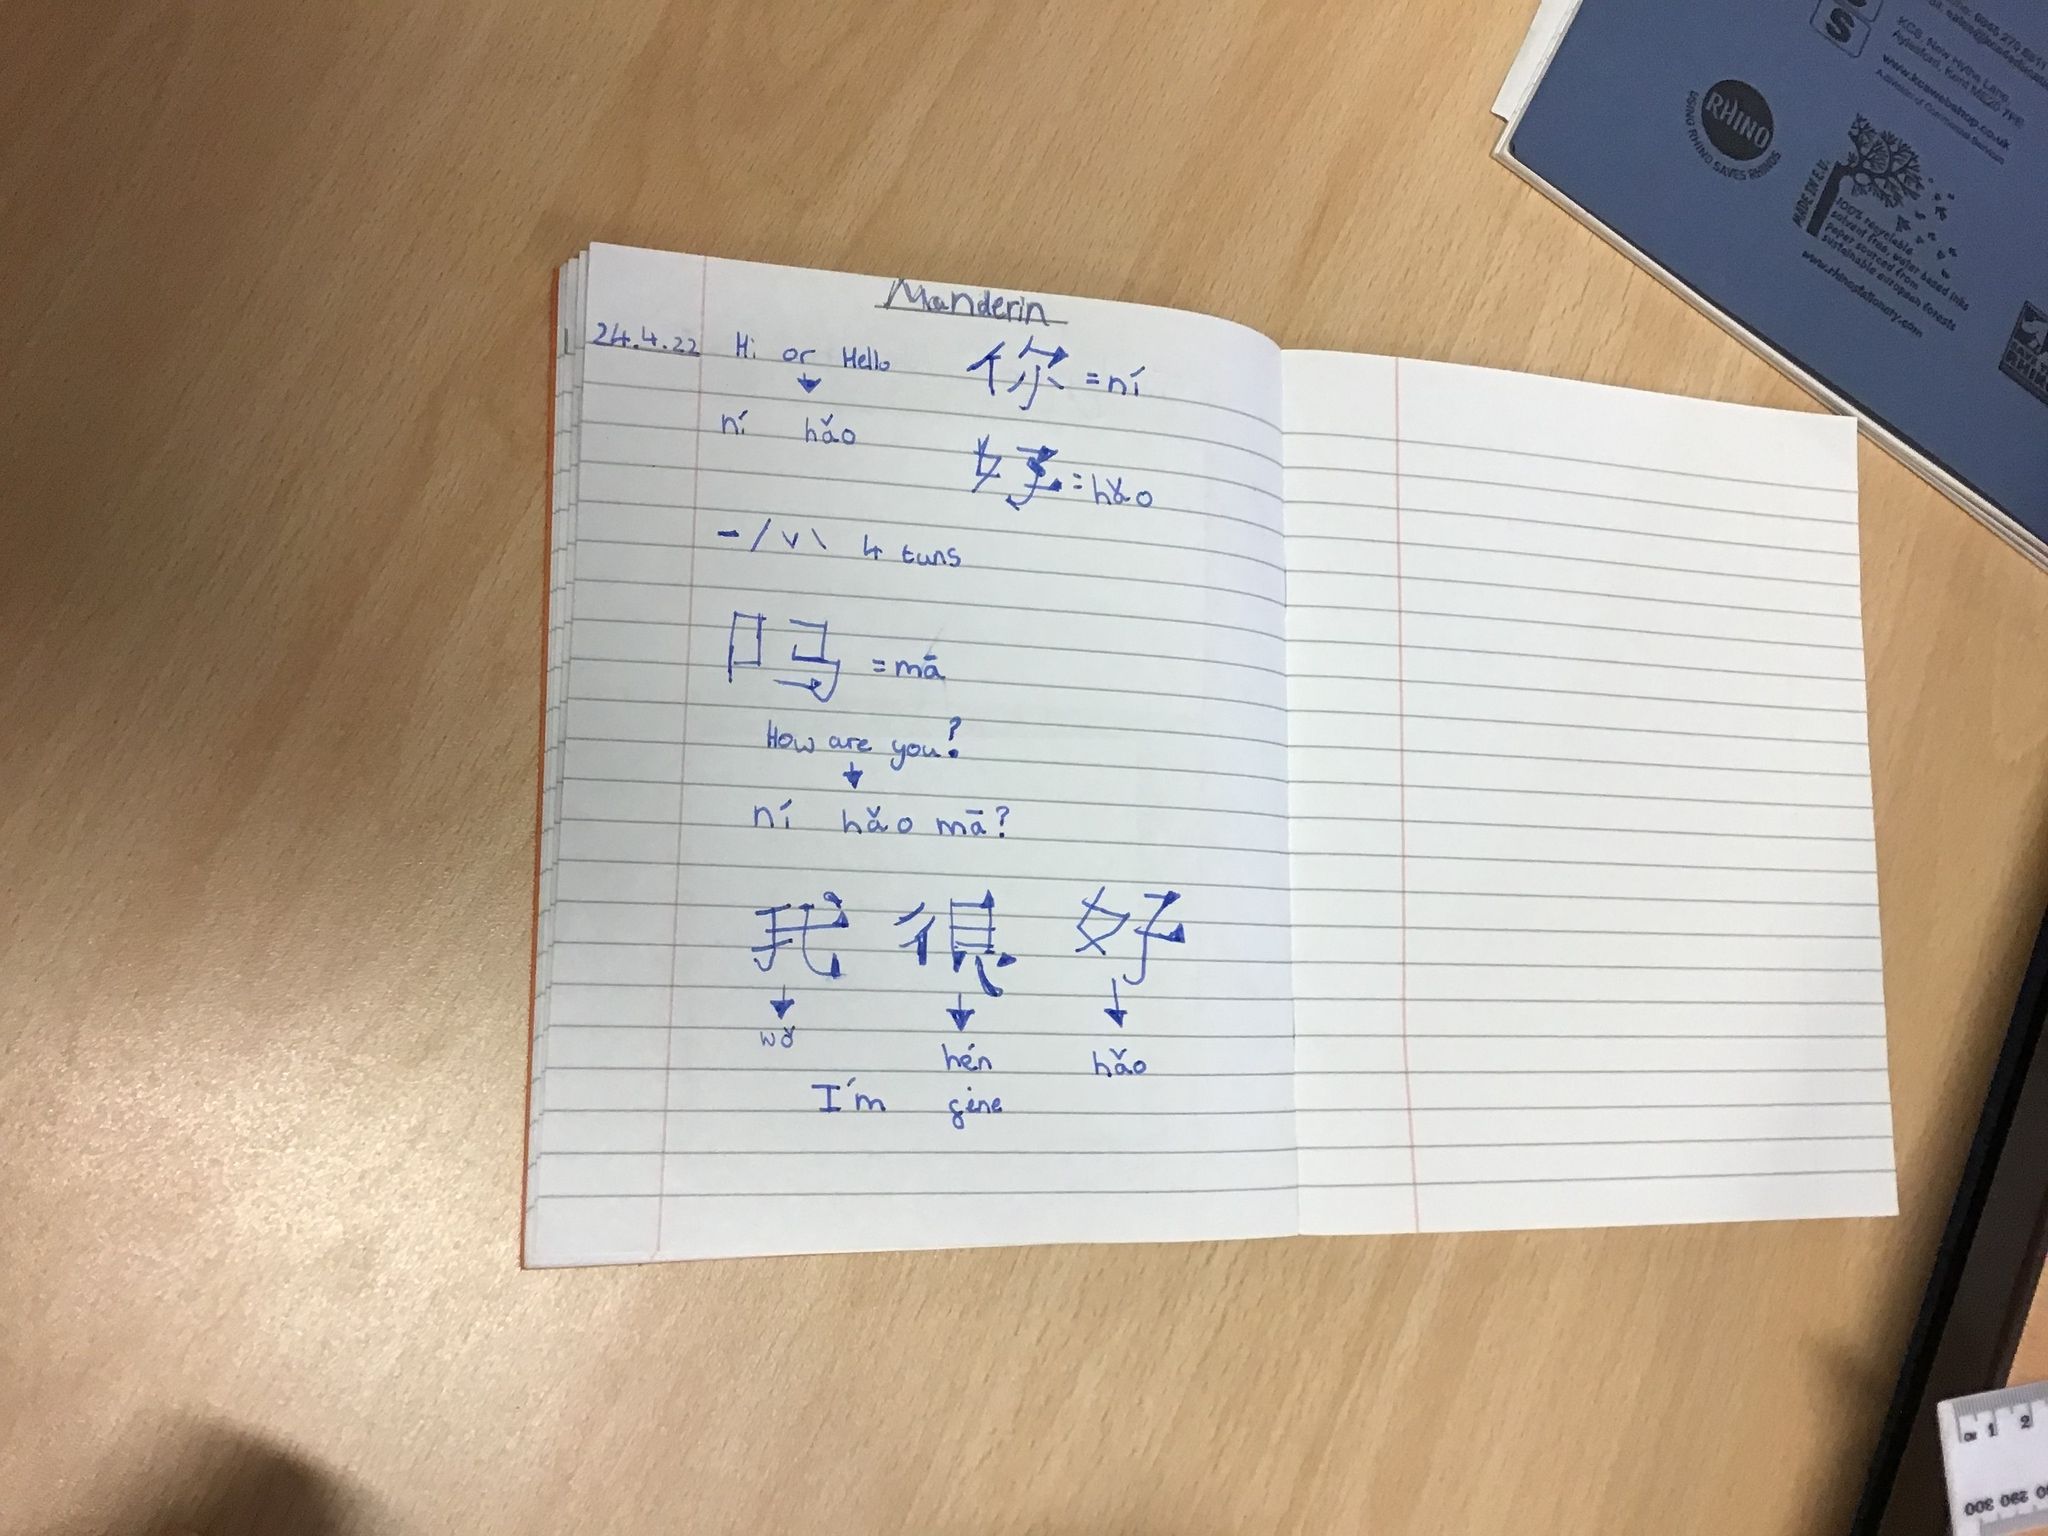 Manderin
24.4.22 Hi or Hello 你 = ní
ní hǎo
好 = hǎo
- / v \ 4 tuns
吗 = mā
How are you?
ní hǎo mā?
我 很 好
wǒ hén hǎo
I'm fine
S
KCS, New Hythe Lane,
Aylesford, Kent ME20 7PE
www.kcswebshop.co.uk
A division of Commercial Services
RHINO
USING RHINO SAVES RHINOS
MADE IN E.U.
100% recyclable
solvent free, water based inks
paper sourced from
sustainable european forests
www.rhinostationery.com
cm 1 2
300 290 280